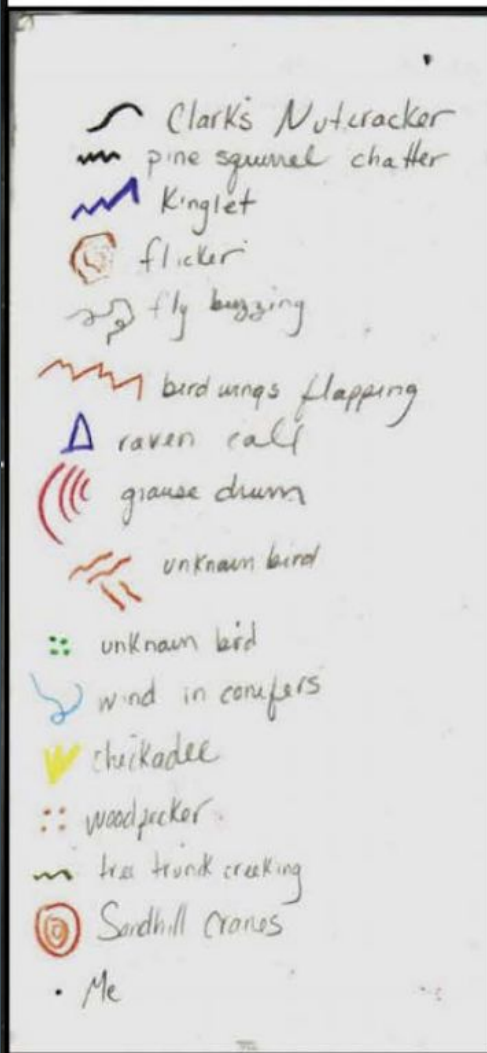 Clark's Nutcracker
pine squirrel chatter
Kinglet
flicker
fly buzzing
bird wings flapping
raven call
grouse drum
unknown bird
unknown bird
wind in conifers
chickadee
woodpecker
tree trunk creeking
Sandhill Cranes
Me